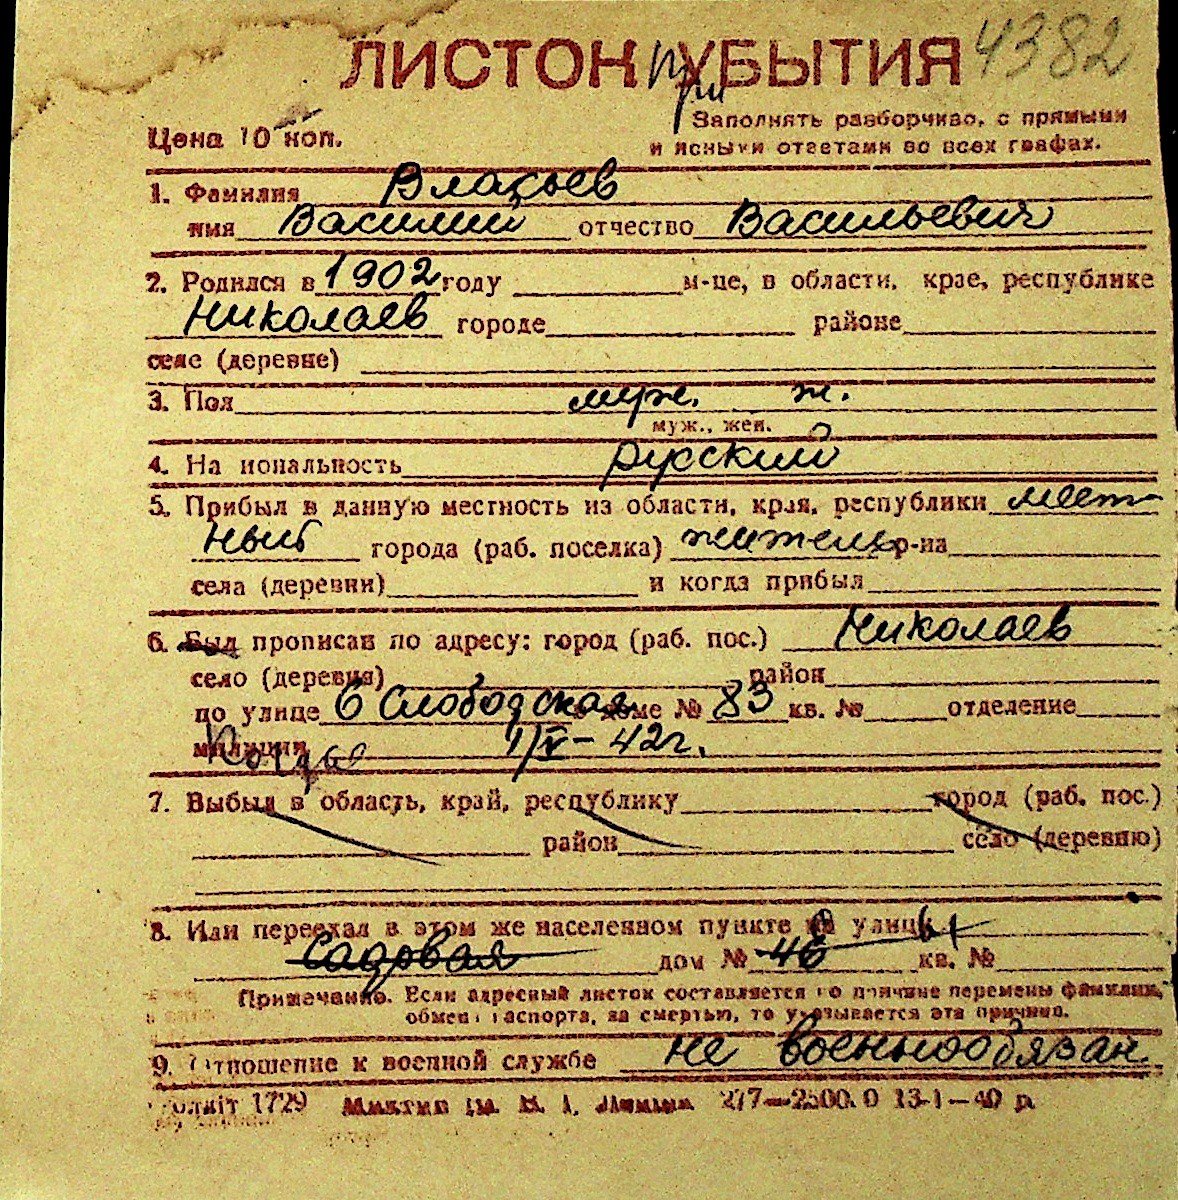 ЛИСТОК при УБЫТИЯ 4382
Цена 10 коп.
Заполнять разборчиво, с прямыми
и ясными ответами во всех графах.
1. Фамилия
имя Василий отчество Васильевич
2. Родился в 1902 году м-це, в области, крае, республике
Николаев городе районе
селе (деревне)
3. Пол муж. ж.
муж., жен.
4. На иональность русский
5. Прибыл в данную местность из области, края, республики мест-
ный города (раб. поселка) житель р-на
села (деревни) и когда прибыл
6. Был прописан по адресу: город (раб. пос.) Николаев
село (деревня) район
по улице 6 Слободская доме № 83 кв. № отделение
милиции Когда 1/V-42г.
7. Выбыл в область, край, республику город (раб. пос.)
район село (деревню)
8. Или переехал в этом же населенном пункте на улицу
Садовая дом № 46 кв. №
Примечание. Если адресный листок составляется по причине перемены фамилии,
обмен паспорта, за смертью, то указывается эта причина.
9. Отношение к военной службе не военнообязан.
1729 277—2500.0 13-1—40 р.